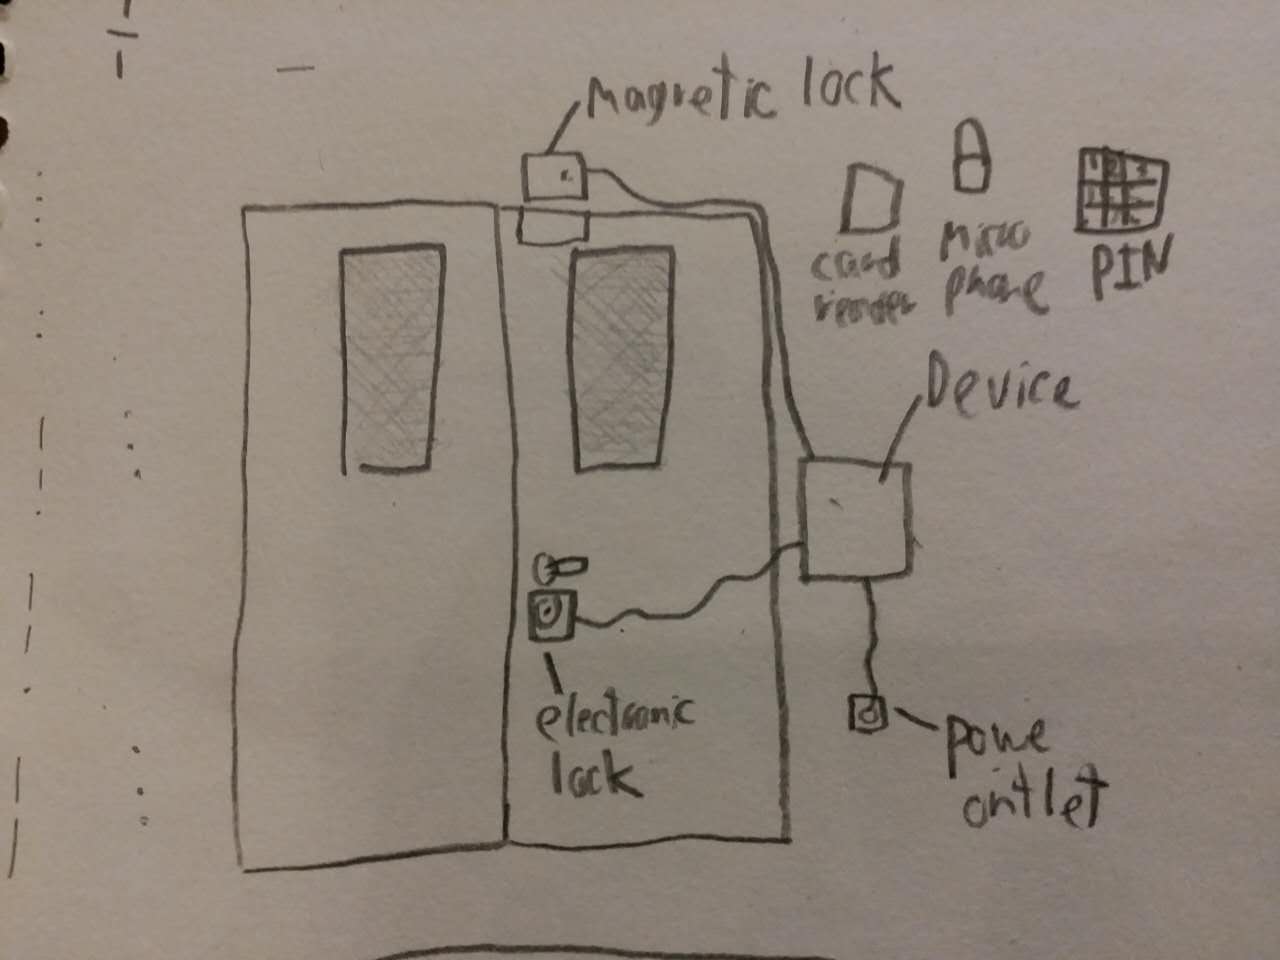 Magnetic lock
card
reader
Micro
phone
PIN
Device
electronic
lock
powe
outlet